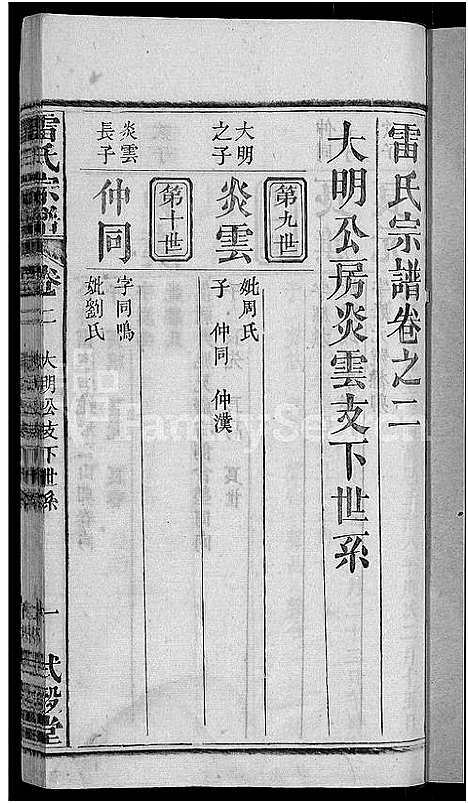 雷氏宗譜卷之二
大明公房炎雲支下世系
第九世
大明之子
炎雲
妣周氏
子 仲同 仲漢
第十世
炎雲長子
仲同
字同鳴
妣劉氏
雷氏宗譜 卷二 大明公支下世系 一 式穀堂
FamilySearch